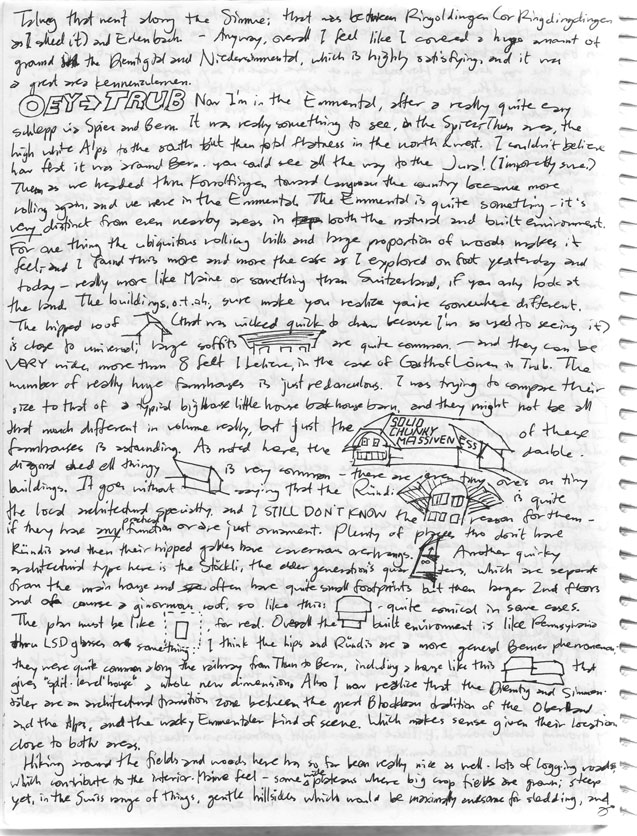 that went along the Simme; that was between Ringoldingen (or Ringdingdingen
as I called it) and Erlenbach. - Anyway, overall I feel like I covered a huge amount of
ground in the Diemtigtal and Niedersimmental, which is highly satisfying, and it was
a great area kennenzulernen.
OEY→TRUB Now I'm in the Emmental, after a really quite easy
schlepp via Spiez and Bern. It was really something to see, in the Spiez/Thun area, the
high white Alps to the south but then total flatness in the north & west. I couldn't believe
how flat it was around Bern. you could see all the way to the Jura! (I'm pretty sure.)
Then as we headed thru Konolfingen toward Langnau the country became more
rolling again, and we were in the Emmental. The Emmental is quite something - it's
very distinct from even nearby areas in both the natural and built environment.
For one thing the ubiquitous rolling hills and large proportion of woods makes it
feel, and I found this more and more the case as I explored on foot yesterday and
today - really more like Maine or something than Switzerland, if you only look at
the land. The buildings, o.t.oh, sure make you realize you're somewhere different.
The hipped roof (that was wicked quick to draw because I'm so used to seeing it)
is close to universal; large soffits are quite common. - and they can be
VARY wide, more than 8 feet I believe, in the case of Gasthof Löwen in Trub. The
number of really huge farmhouses is just redonculous. I was trying to compare their
size to that of a typical big house little house back house barn, and they might not be all
that much different in volume really, but just the SOLID CHUNKY MASSIVENESS of these
farmhouses is astounding. As noted here, the double
shed all thingy is very common - there are even tiny ones on tiny
buildings. It goes without saying that the Ründi is quite
the local architectural specialty, and I STILL DON'T KNOW the reason for them -
if they have any practical function or are just ornament. Plenty of places tho don't have
Ründis and then their hipped gables have cavernous overhangs. Another quirky
architectural type here is the Stöckli, the older generation's quarters, which are separate
from the main house and often have quite small footprints but then larger 2nd floors
and of course a ginormous roof, so like this: - quite comical in some cases.
The plan must be like for real. Overall the built environment is like Pennsylvania
thru LSD glasses or something. I think the hips and Ründis are a more general Berner phenomenon.
they were quite common along the railway from Thun to Bern, including a house like this that
gives "split-level house" a whole new dimension. Also I now realize that the Diemtig and Simmen-
täler are an architectural transition zone between the great Blockbau tradition of the Oberland
and the Alps, and the wacky Emmentaler kind of scene. Which makes sense given their location
close to both areas.
Hiking around the fields and woods here has so far been really nice as well. lots of logging roads
which contribute to the interior-Maine feel - some wide plateaus where big crop fields are grown; steep
yet, in the Swiss range of things, gentle hillsides which would be maximally awesome for sledding, and